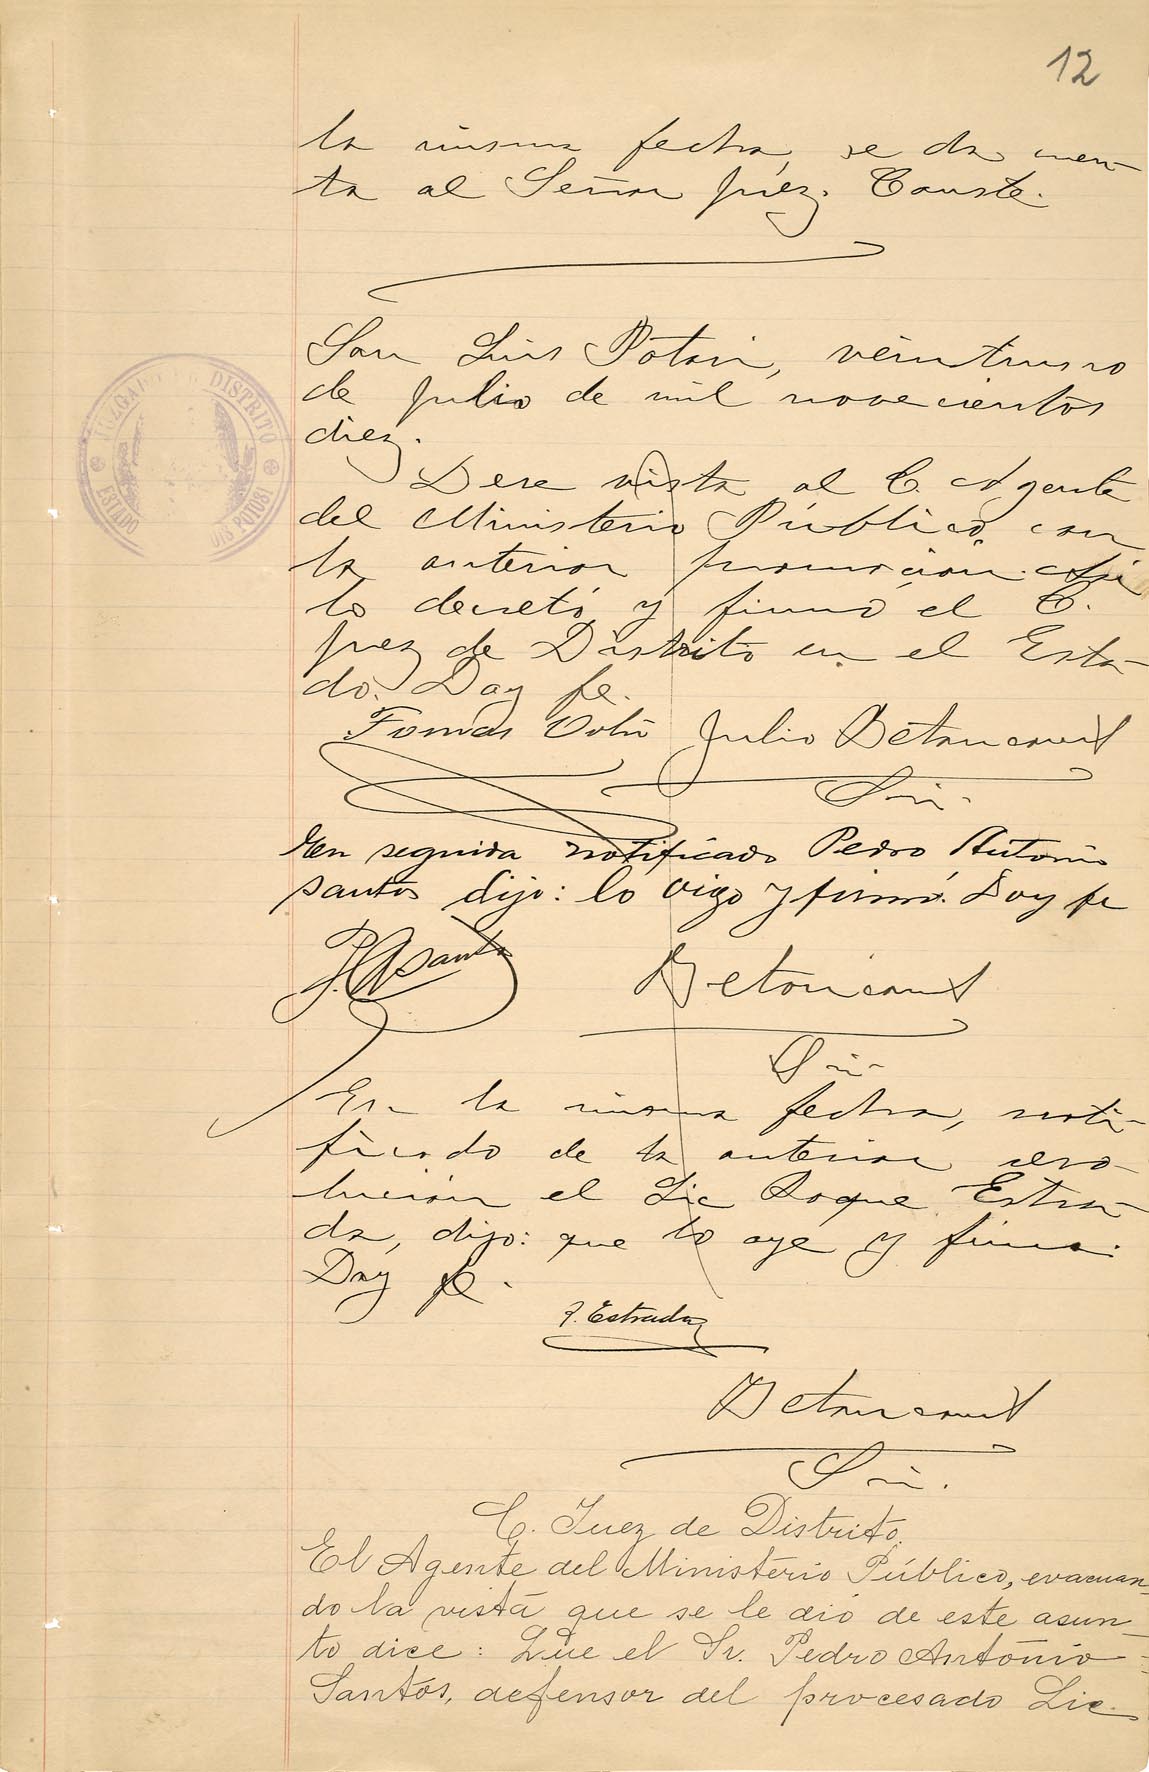 12
la misma fecha, se da cuen-
ta al Señor Juez. Conste.
San Luis Potosi, veintiuno
de Julio de mil novecientos
diez.
Dese vista al C. Agente
del Ministerio Público, con
la anterior promoción. Así
lo decretó y firmó el C.
Juez de Distrito en el Esta-
do. Doy fe.
JUZGADO DE DISTRITO
ESTADO LUIS POTOSI
Tomas Ortiz Julio Betancourt
Srio.
En seguida notificado Pedro Antonio
Santos dijo: lo oigo y firmó. Doy fe
P. A Santos Betancourt
Srio.
En la misma fecha, noti-
ficado de la anterior reso-
lución el Lic Roque Estra-
da, dijo: que lo oye y firma.
Doy fe.
R. Estrada
Betancourt
Srio.
C. Juez de Distrito.
El Agente del Ministerio Público, evacuan-
do la vista que se le dió de este asun-
to dice: Que el Sr. Pedro António
Santos, defensor del procesado Lic.